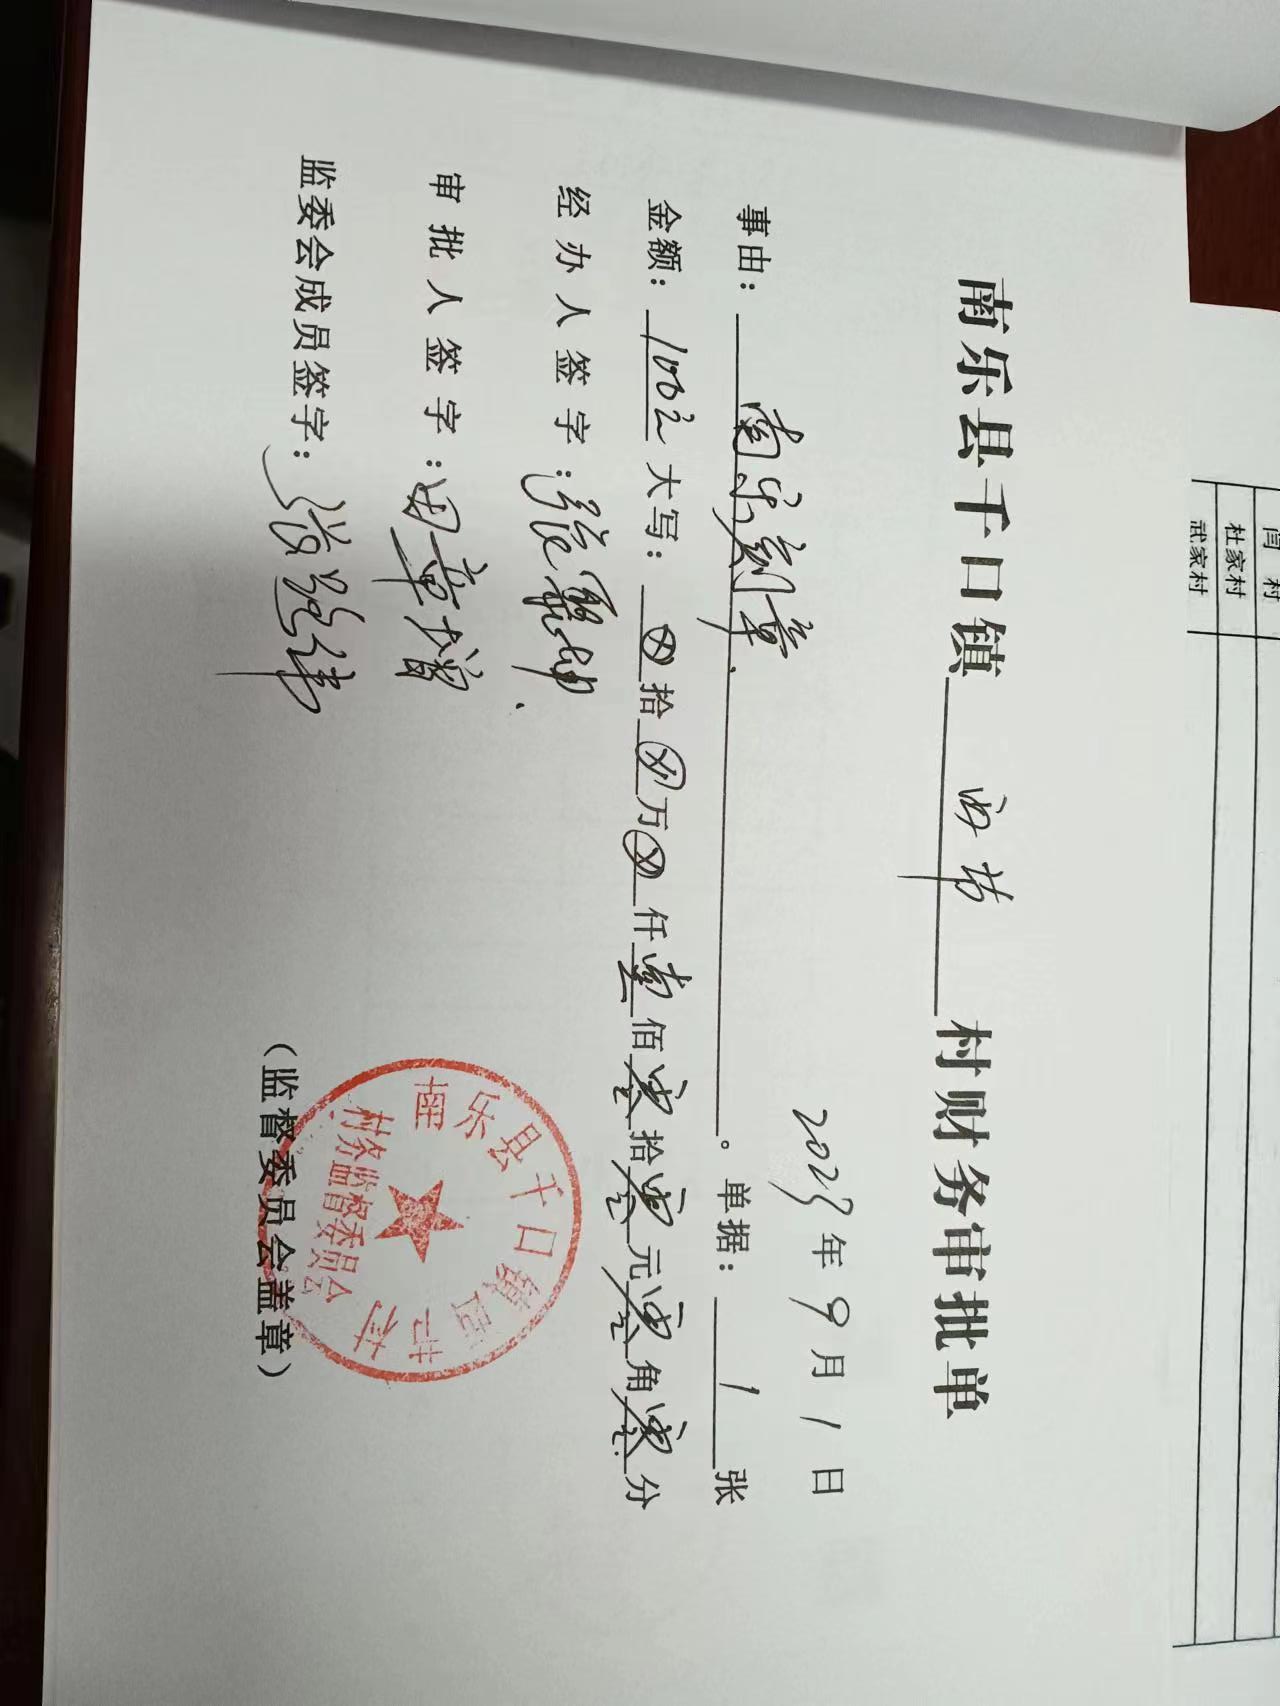 南乐县千口镇 西节 村财务审批单
2023年9月1日
事由：南乐刻章。单据：1张
金额：100元 大写：ⓧ拾ⓧ万ⓧ仟壹佰零拾零元零角零分
经办人签字：
审批人签字：田章增
监委会成员签字：
（监督委员会盖章）
南乐县千口镇西节村
村务监督委员会
闫村
杜家村
武家村